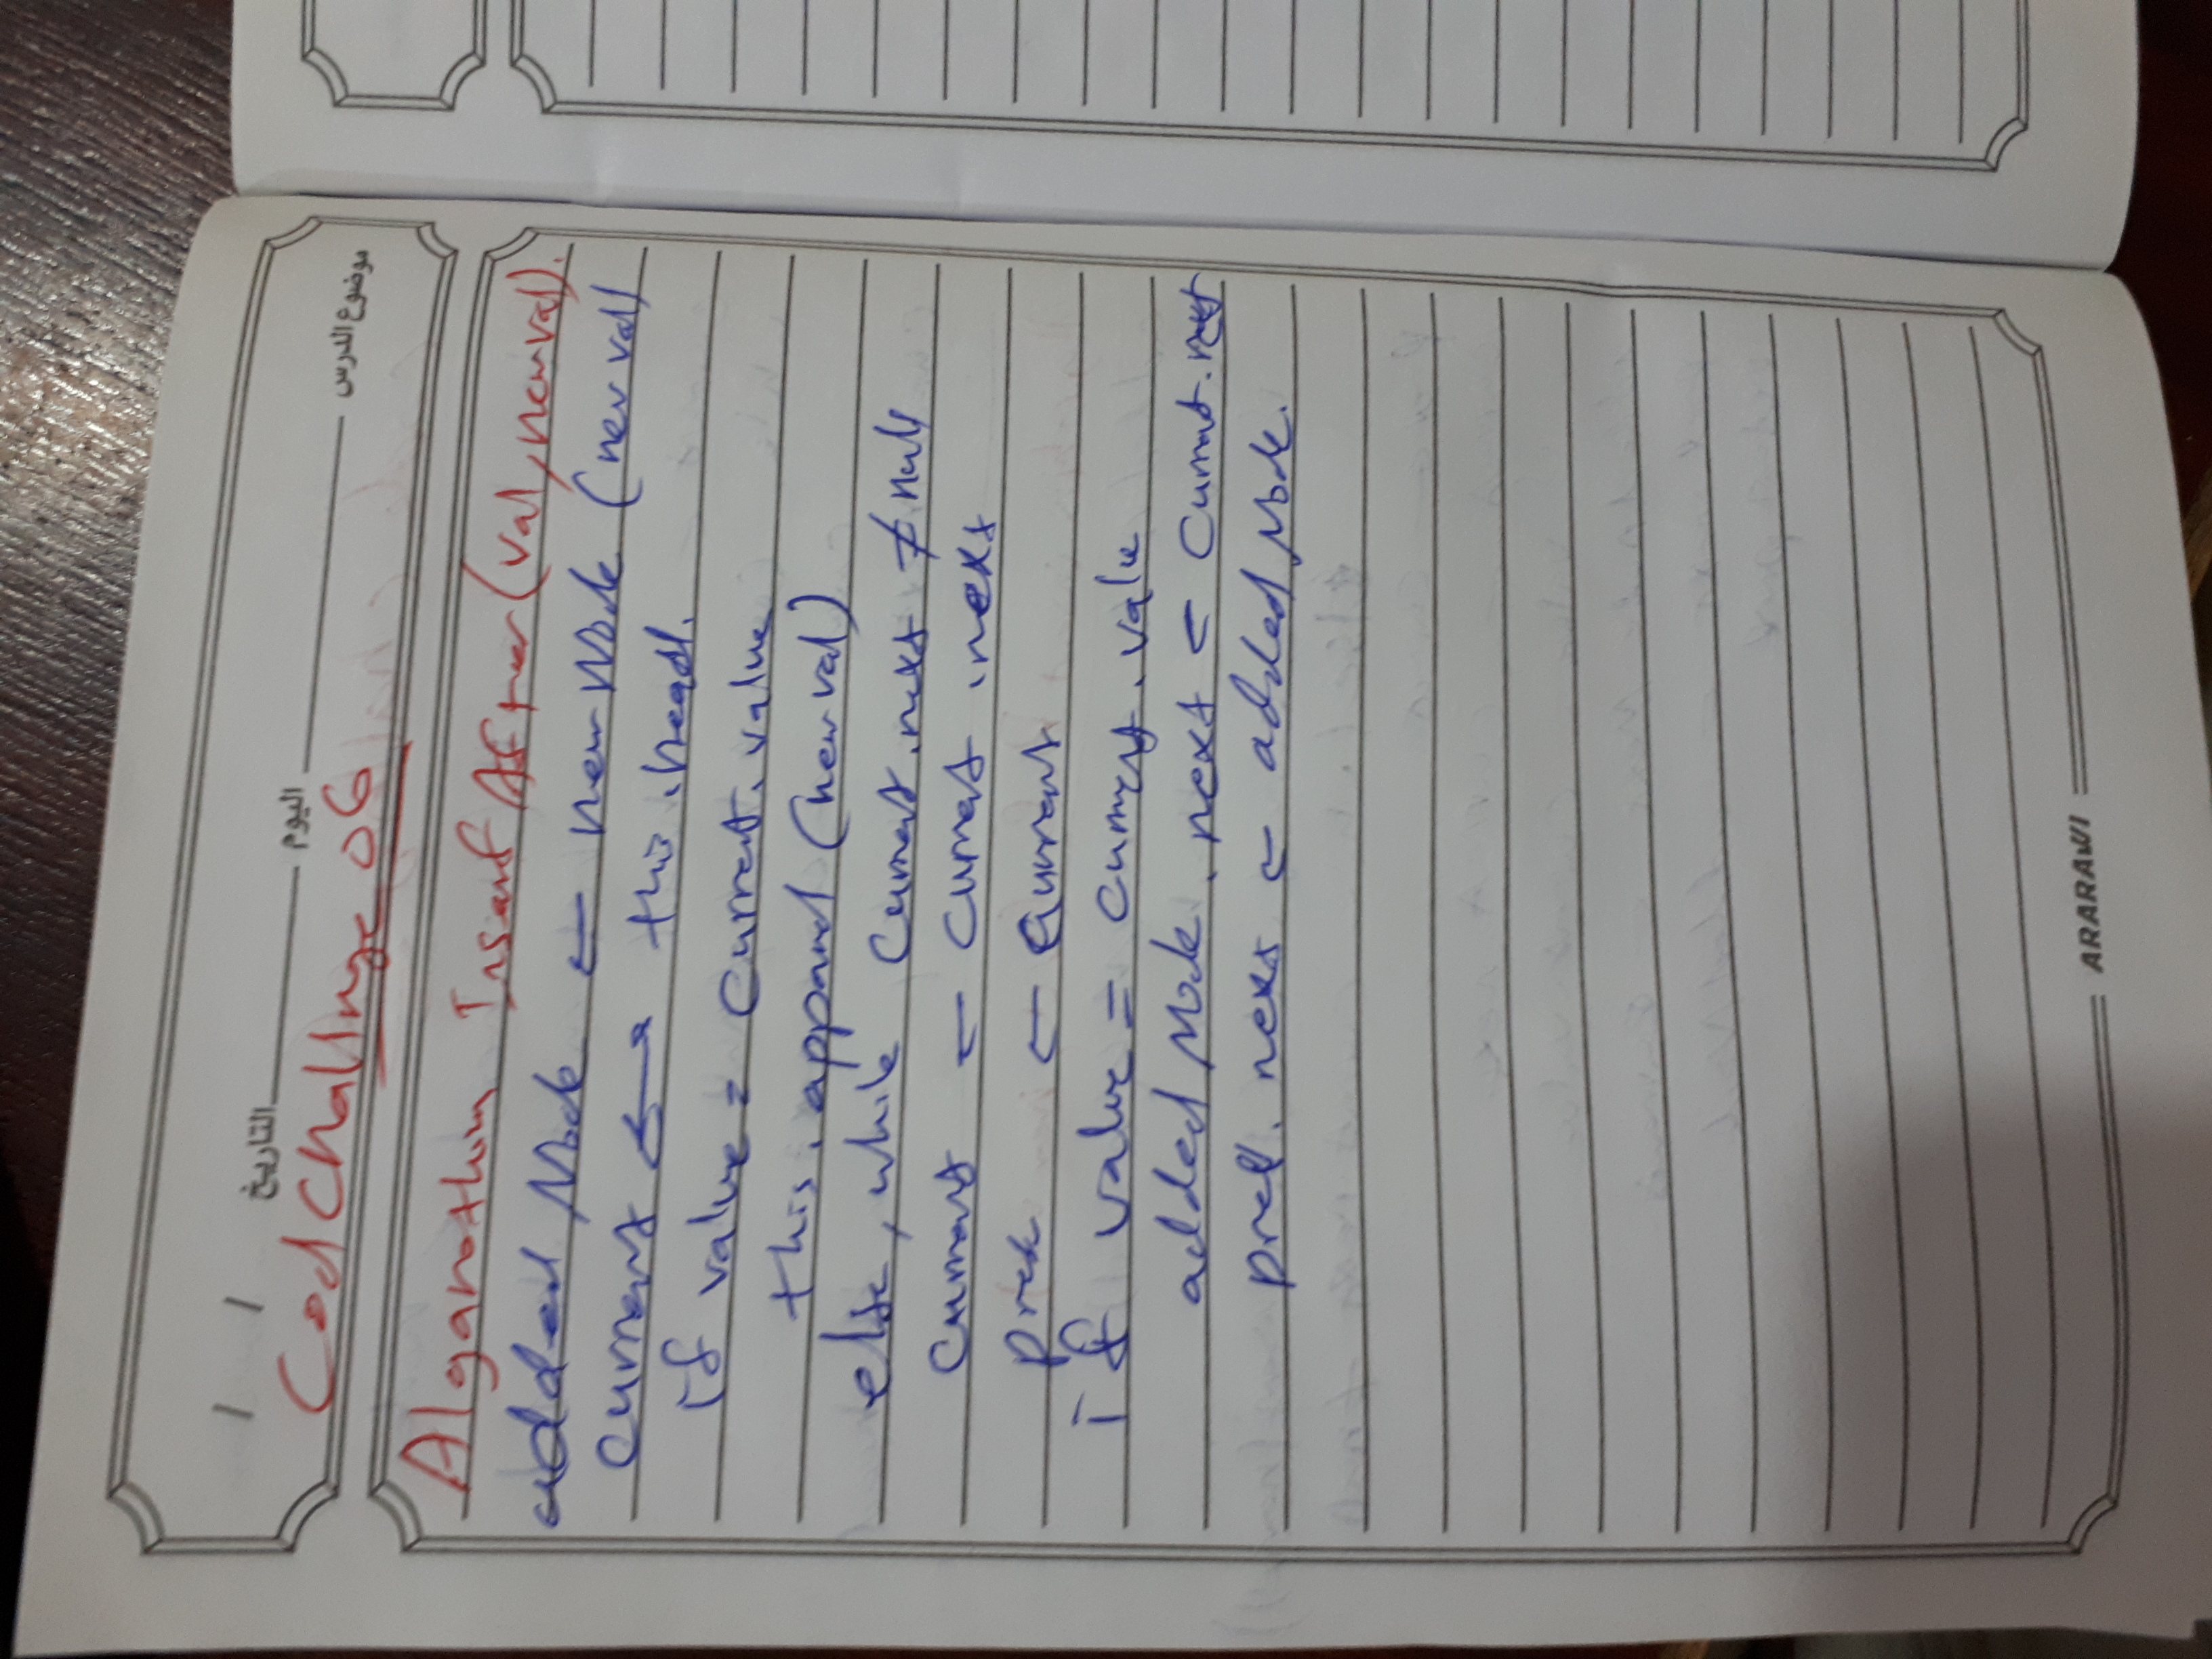 التاريخ / / اليوم موضوع الدرس
Cod Challnge 06
Algarothim Insert After (val, newval).
added Node ← new Node (new val)
Current ← this.head.
if value = current.value
this.appand (new val)
else, while Current.next ≠ null
Current ← Current.next
Prev ← Current
if value = Current.value
added Node.next ← Current.next
prev.next ← added Node.
ARARAWI